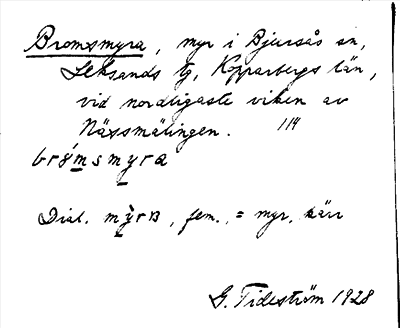 Bromsmyra, myr i Bjursås sn,
Leksands tg, Kopparbergs län,
vid nordligaste viken av
Nässmälingen. 114
brómsmyra
Dial. myra, fem., = myr, kärr
G. Tideström 1928